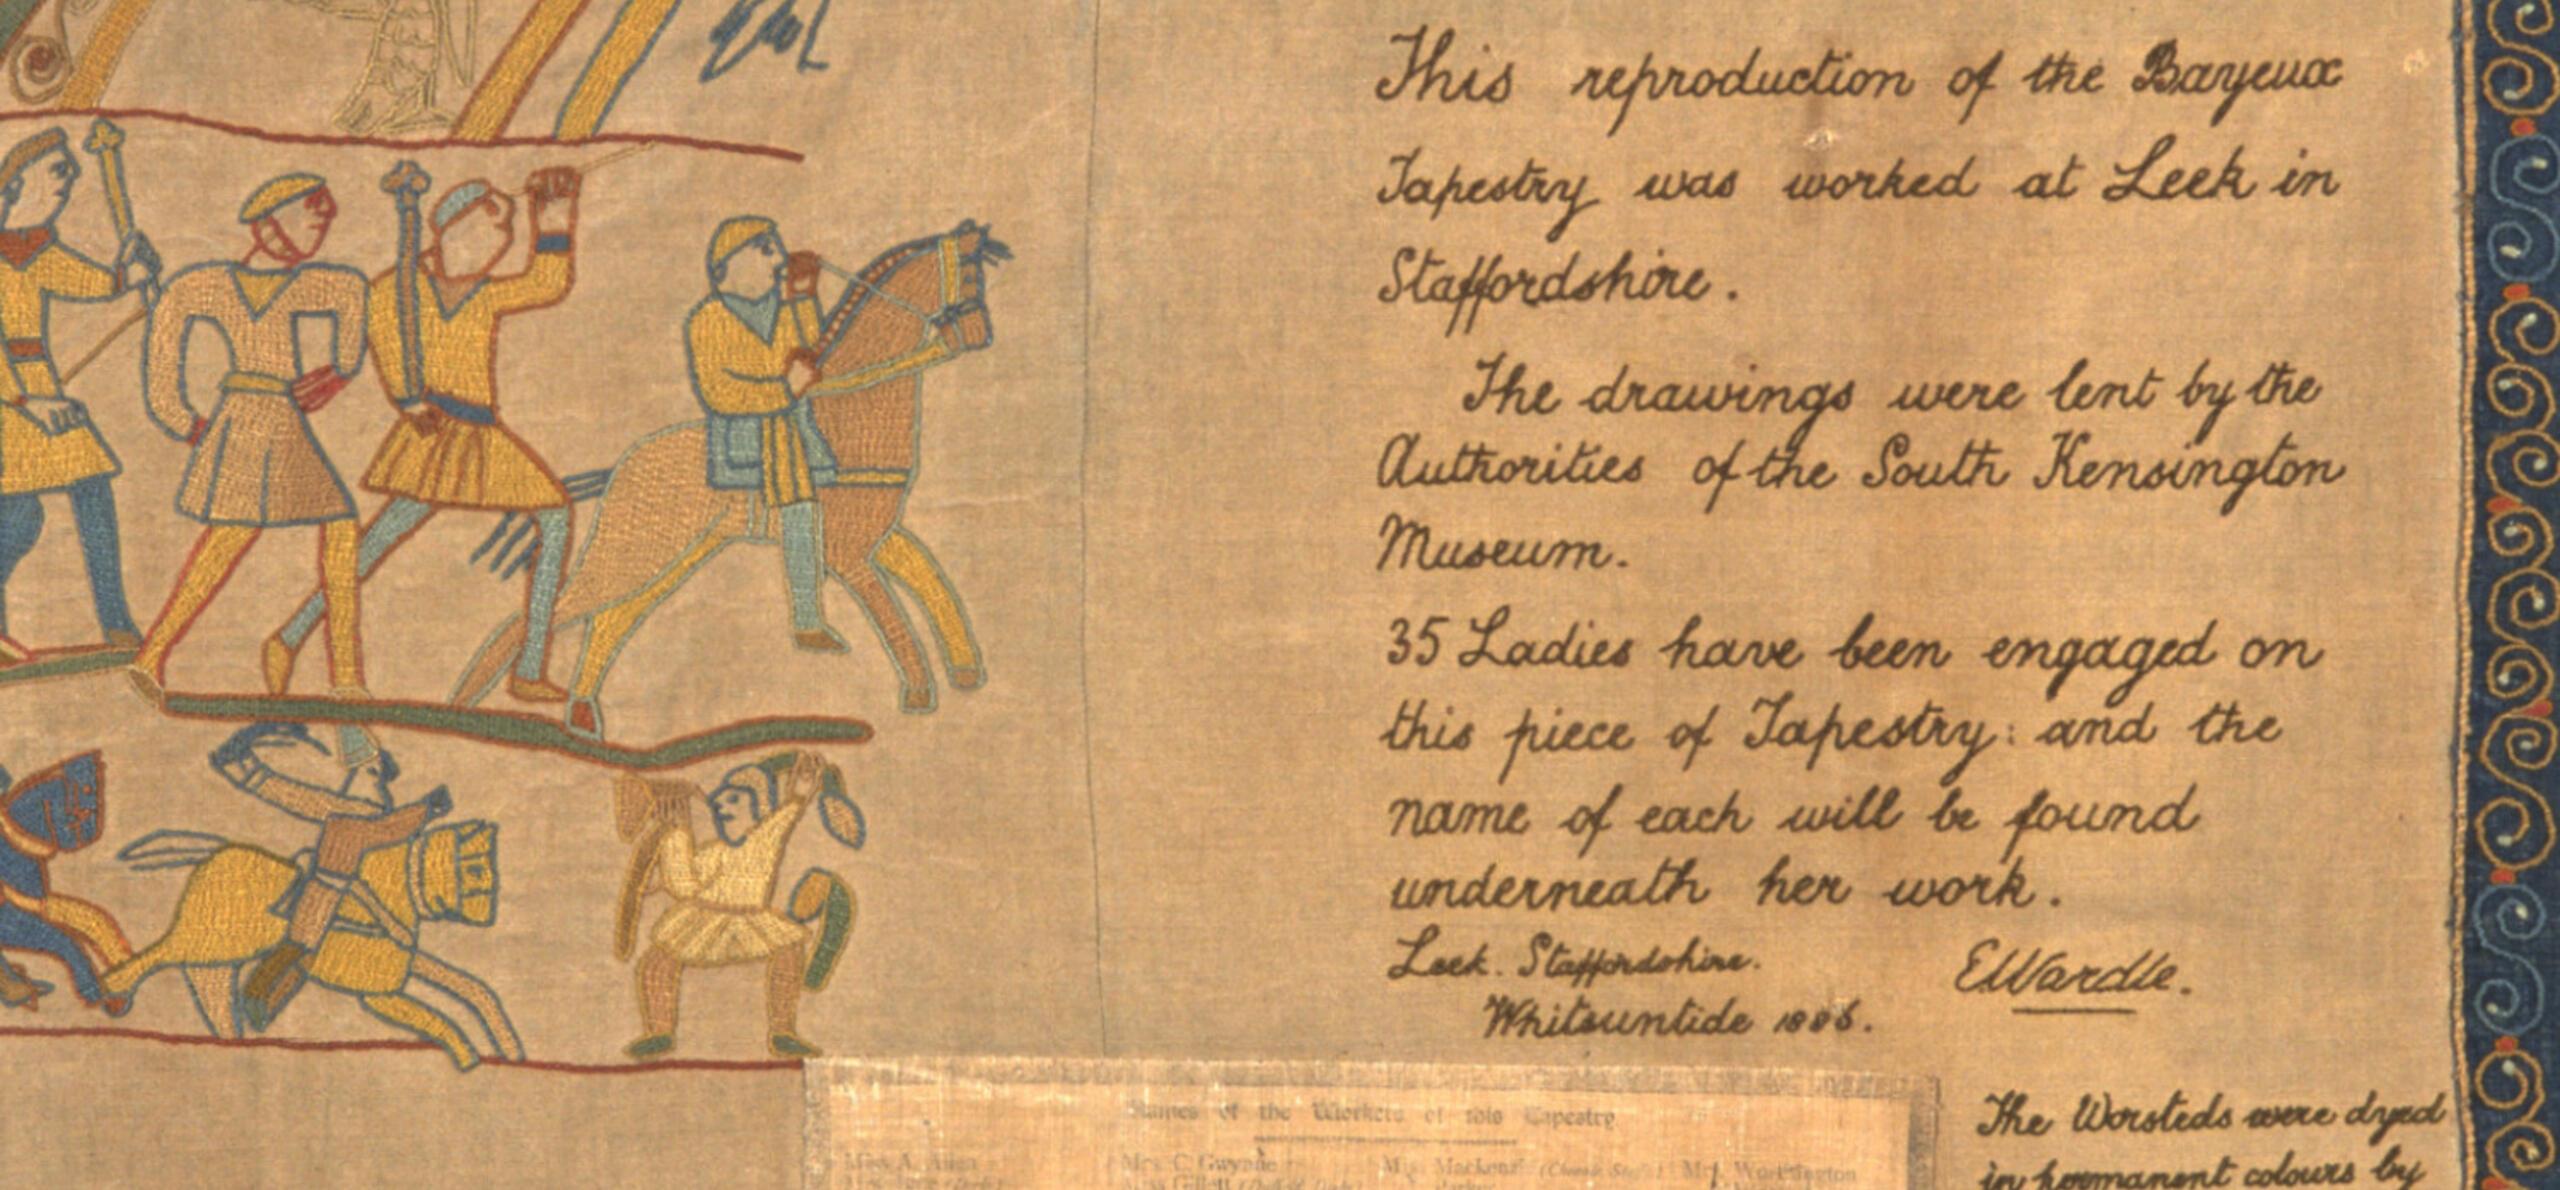 This reproduction of the Bayeux
Tapestry was worked at Leek in
Staffordshire.
The drawings were lent by the
Authorities of the South Kensington
Museum.
35 Ladies have been engaged on
this piece of Tapestry: and the
name of each will be found
underneath her work.
Leek. Staffordshire.
EWardle.
Whitsuntide 1886.
Names of the Workers of this Tapestry
Miss A. Allen
Mrs. C. Gwynne
Mackenzie
Worthington
The Worsteds were dyed
in permanent colours by